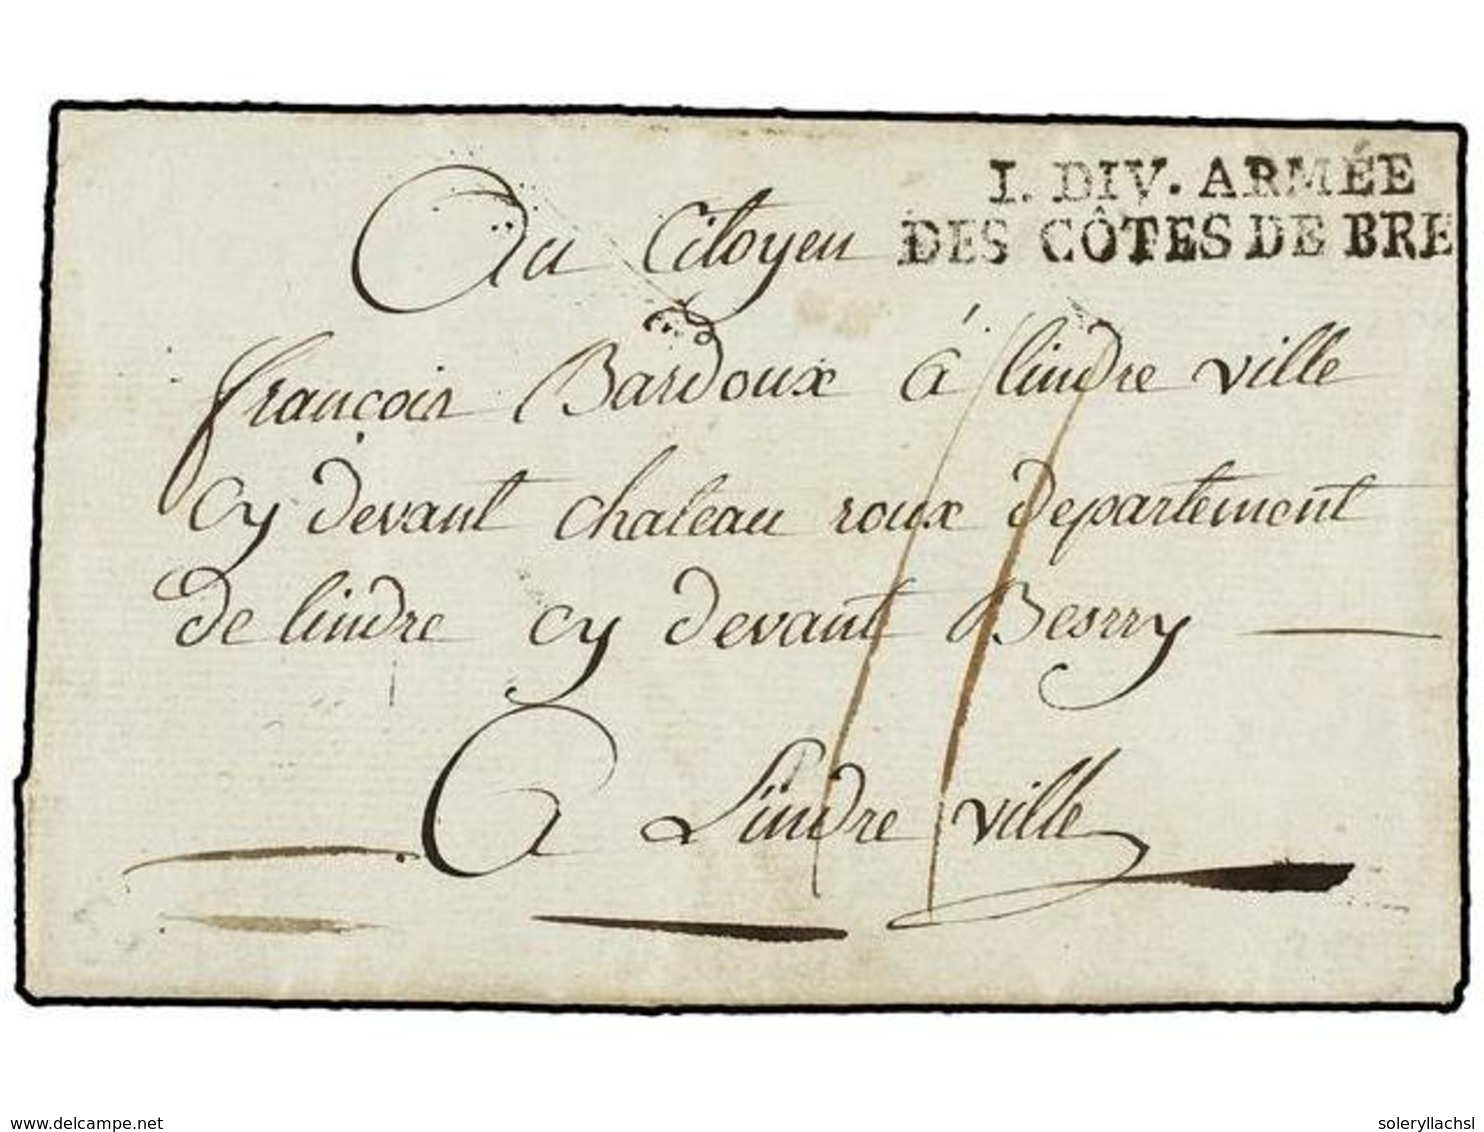 I. DIV. ARMÉE
DES CÔTES DE BRE
Au Citoyen
françois Bardoux á lindre ville
cy devant chateau roux departement
de lindre cy devant Besrry
A Lindre ville
delcampe.net
soleryllachsl